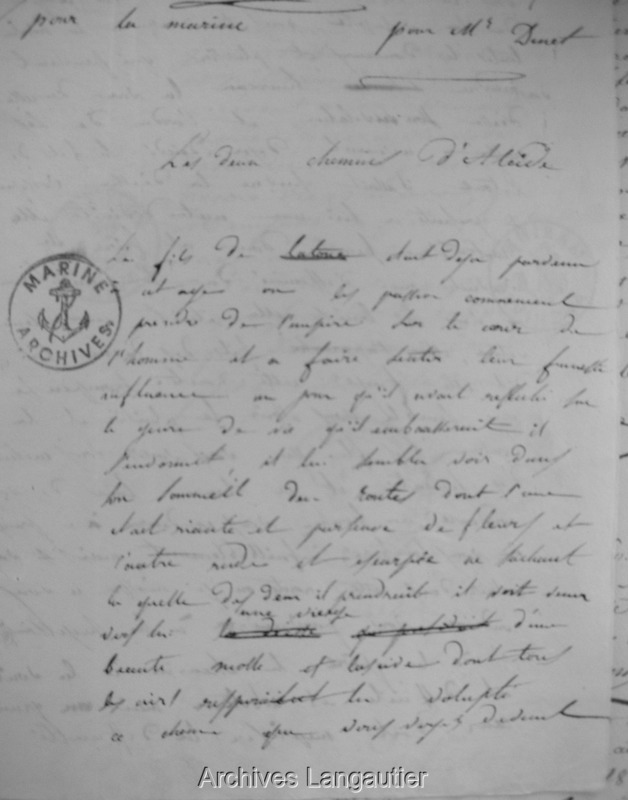 pour la marine
pour Mr Dinet
Les deux chemins d'Alcide
Le fils de latone etait deja parvenu
MARINE
ARCHIVES
à cet age ou les passion commencent
prendre de l'empire sur le cœur de
l'homme et a faire sentir leur funeste
influence un jour qu'il avait reflechi sur
le genre de vie qu'il embrasserait il
s'endormit, il lui sembla voir dans
son sommeil deux routes dont l'une
etait riante et parsemée de fleurs et
l'autre rude et escarpée ne sachant
la quelle des deux il prendrait il voit venir
une vierge
vers lui la d'une
beauté molle et lascive dont tous
les airs respiraient la volupté
ce chemin que vous voyez devant
Archives Langautier